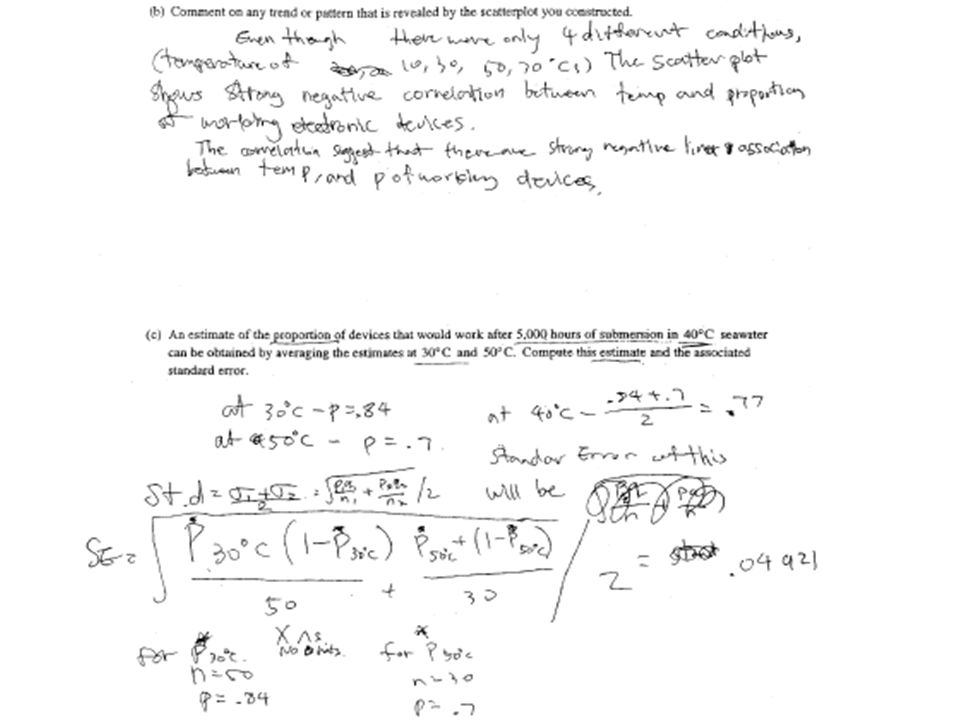 (b) Comment on any trend or pattern that is revealed by the scatterplot you constructed.
Even though there were only 4 different conditions,
(temperature of 10, 30, 50, 70°Cs) The scatter plot
shows strong negative correlation between temp and proportion
of working electronic devices.
The correlation suggest that there are strong negative liner association
between temp, and p of working devices,
(c) An estimate of the proportion of devices that would work after 5,000 hours of submersion in 40°C seawater
can be obtained by averaging the estimates at 30°C and 50°C. Compute this estimate and the associated
standard error.
at 30°C - P = .84
at 50°C - P = .7
at 40°C - (.84 + .7)/2 = .77
Standar Error of this
will be
St.d = (σ₁+σ₂)/2 = √(p₁q₁/n₁ + p₂q₂/n₂) /2
SE = √(P̂30°C (1-P̂30°C)/50 + P̂50°C (1-P̂50°C)/30) / 2 = .04921
for P̂30°C
n = 50
P = .84
for P̂50°C
n = 30
P = .7